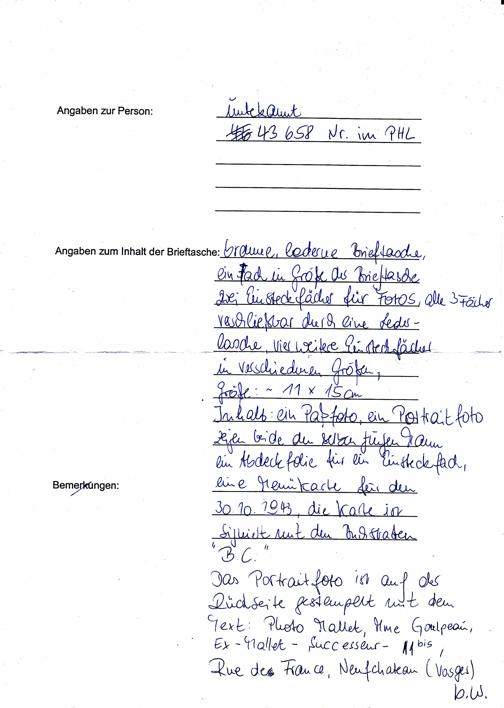 Angaben zur Person: Unbekannt
43 658 Nr. im PHL
Angaben zum Inhalt der Brieftasche: braune, lederne Brieftasche,
ein Fach in Größe der Brieftasche
zwei Einsteckfächer für Fotos, alle 3 Fächer
verschließbar durch eine Leder-
lasche, vier weitere Einsteckfächer
in verschiedenen Größen,
Größe: ~ 11 x 15 cm
Inhalt: ein Paßfoto, ein Portraitfoto
zeigen beide den selben jungen Mann
ein Abdeckfolie für ein Einsteckfach,
Bemerkungen: eine Menükarte für den
30.10.1943, die Karte ist
signiert mit den Buchstaben
"B.C."
Das Portraitfoto ist auf der
Rückseite gestempelt mit dem
Text: Photo Mallet, Mme Goulpeau,
Ex-Mallet - Successeur - 11 bis,
Rue de France, Neufchateau (Vosges)
b.w.